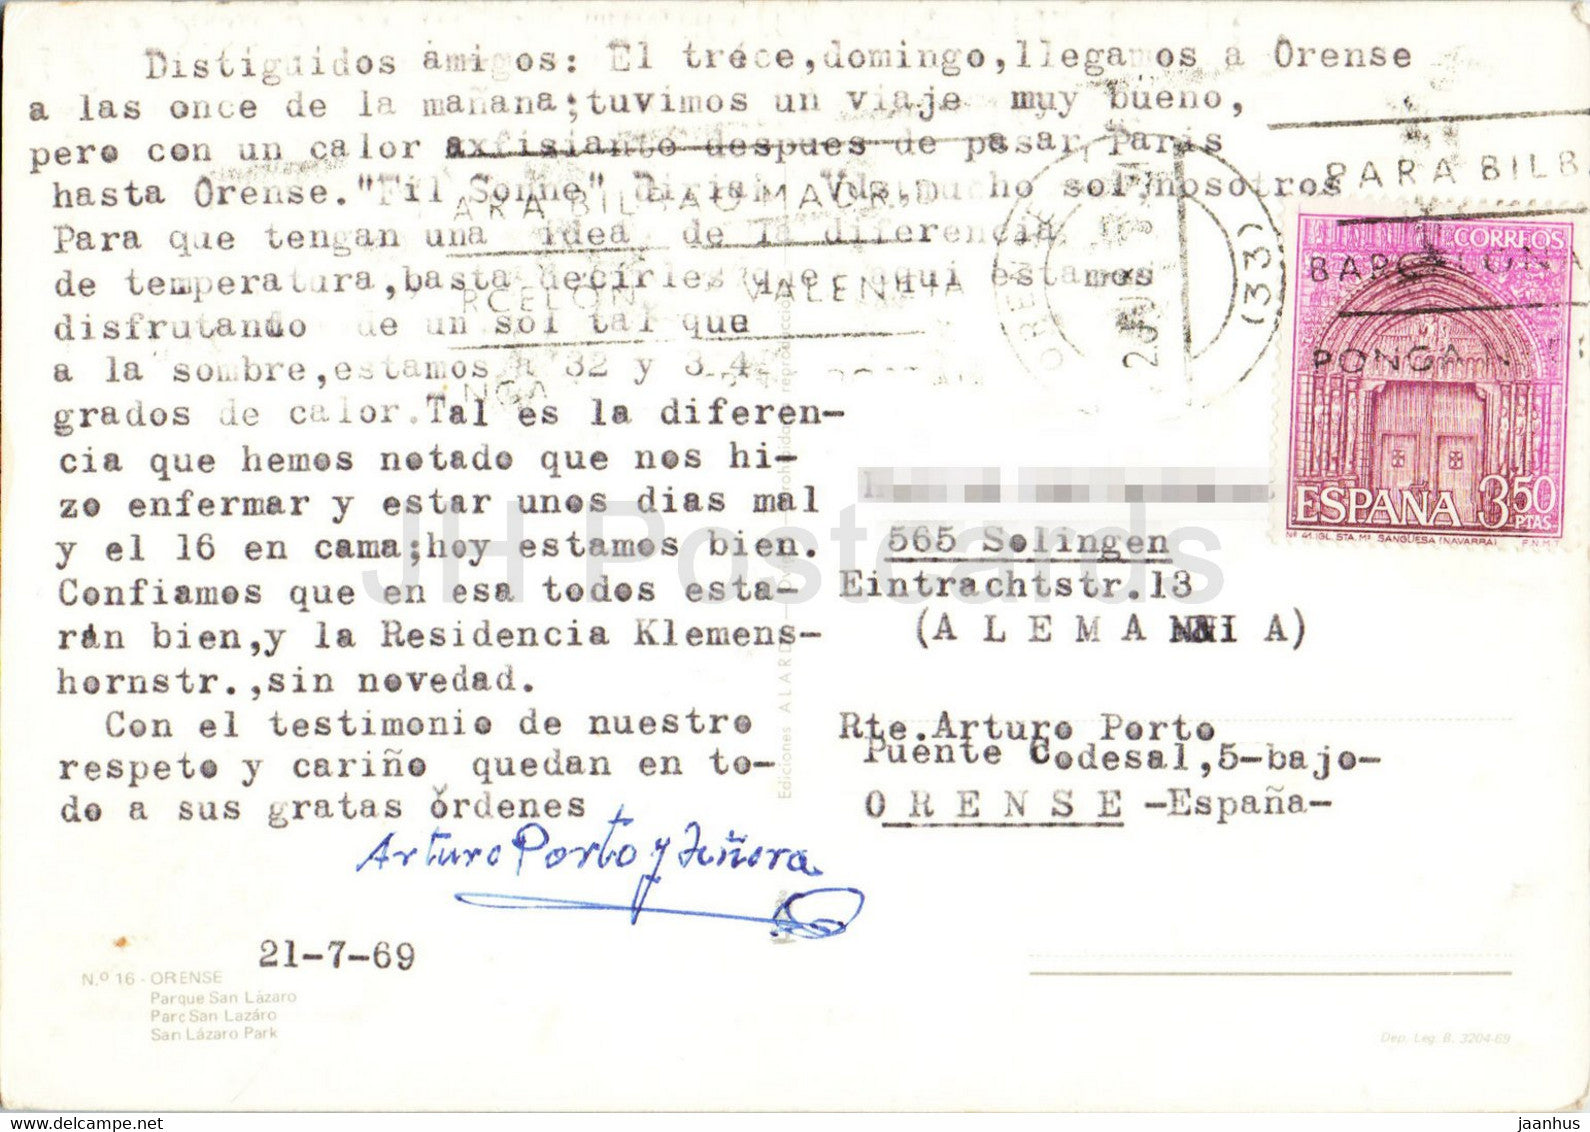 Distiguidos amigos: El tréce,domingo,llegamos a Orense
a las once de la mañana;tuvimos un viaje muy bueno,
pero con un calor axfisianto despues de pasar Paris
hasta Orense."Fil Sonne" dirian Vds,mucho sol nosotros
Para que tengan una idea de la diferencia
de temperatura,basta decirles que aqui estamos
disfrutando de un sol tal que
a la sombre,estamos a 32 y 34
grados de calor.Tal es la diferen-
cia que hemos notado que nos hi-
zo enfermar y estar unos dias mal
y el 16 en cama;hoy estamos bien.
Confiamos que en esa todos esta-
rán bien,y la Residencia Klemens-
hornstr.,sin novedad.
Con el testimonio de nuestro
respeto y cariño quedan en to-
do a sus gratas órdenes
Arturo Porto y Señora
21-7-69
Nº 16 - ORENSE
Parque San Lázaro
Parc San Lazáro
San Lázaro Park
Ediciones ALARDE
565 Solingen
Eintrachtstr.13
(A L E M A N I A)
Rte.Arturo Porto
Puente Codesal,5-bajo-
O R E N S E -España-
Dep. Leg. B. 3204-69
CORREOS
ESPAÑA 3,50
PTAS.
Nº 41.IGL. STA. Mª SANGUESA (NAVARRA) F.N.M.T.
PARA BILB
BARCELONA
PONGA
ARA BILBAO MADRID
RCELON VALENCIA
NGA
ORENSE
(33)
JH Postcards
www.delcampe.net
jaanhus